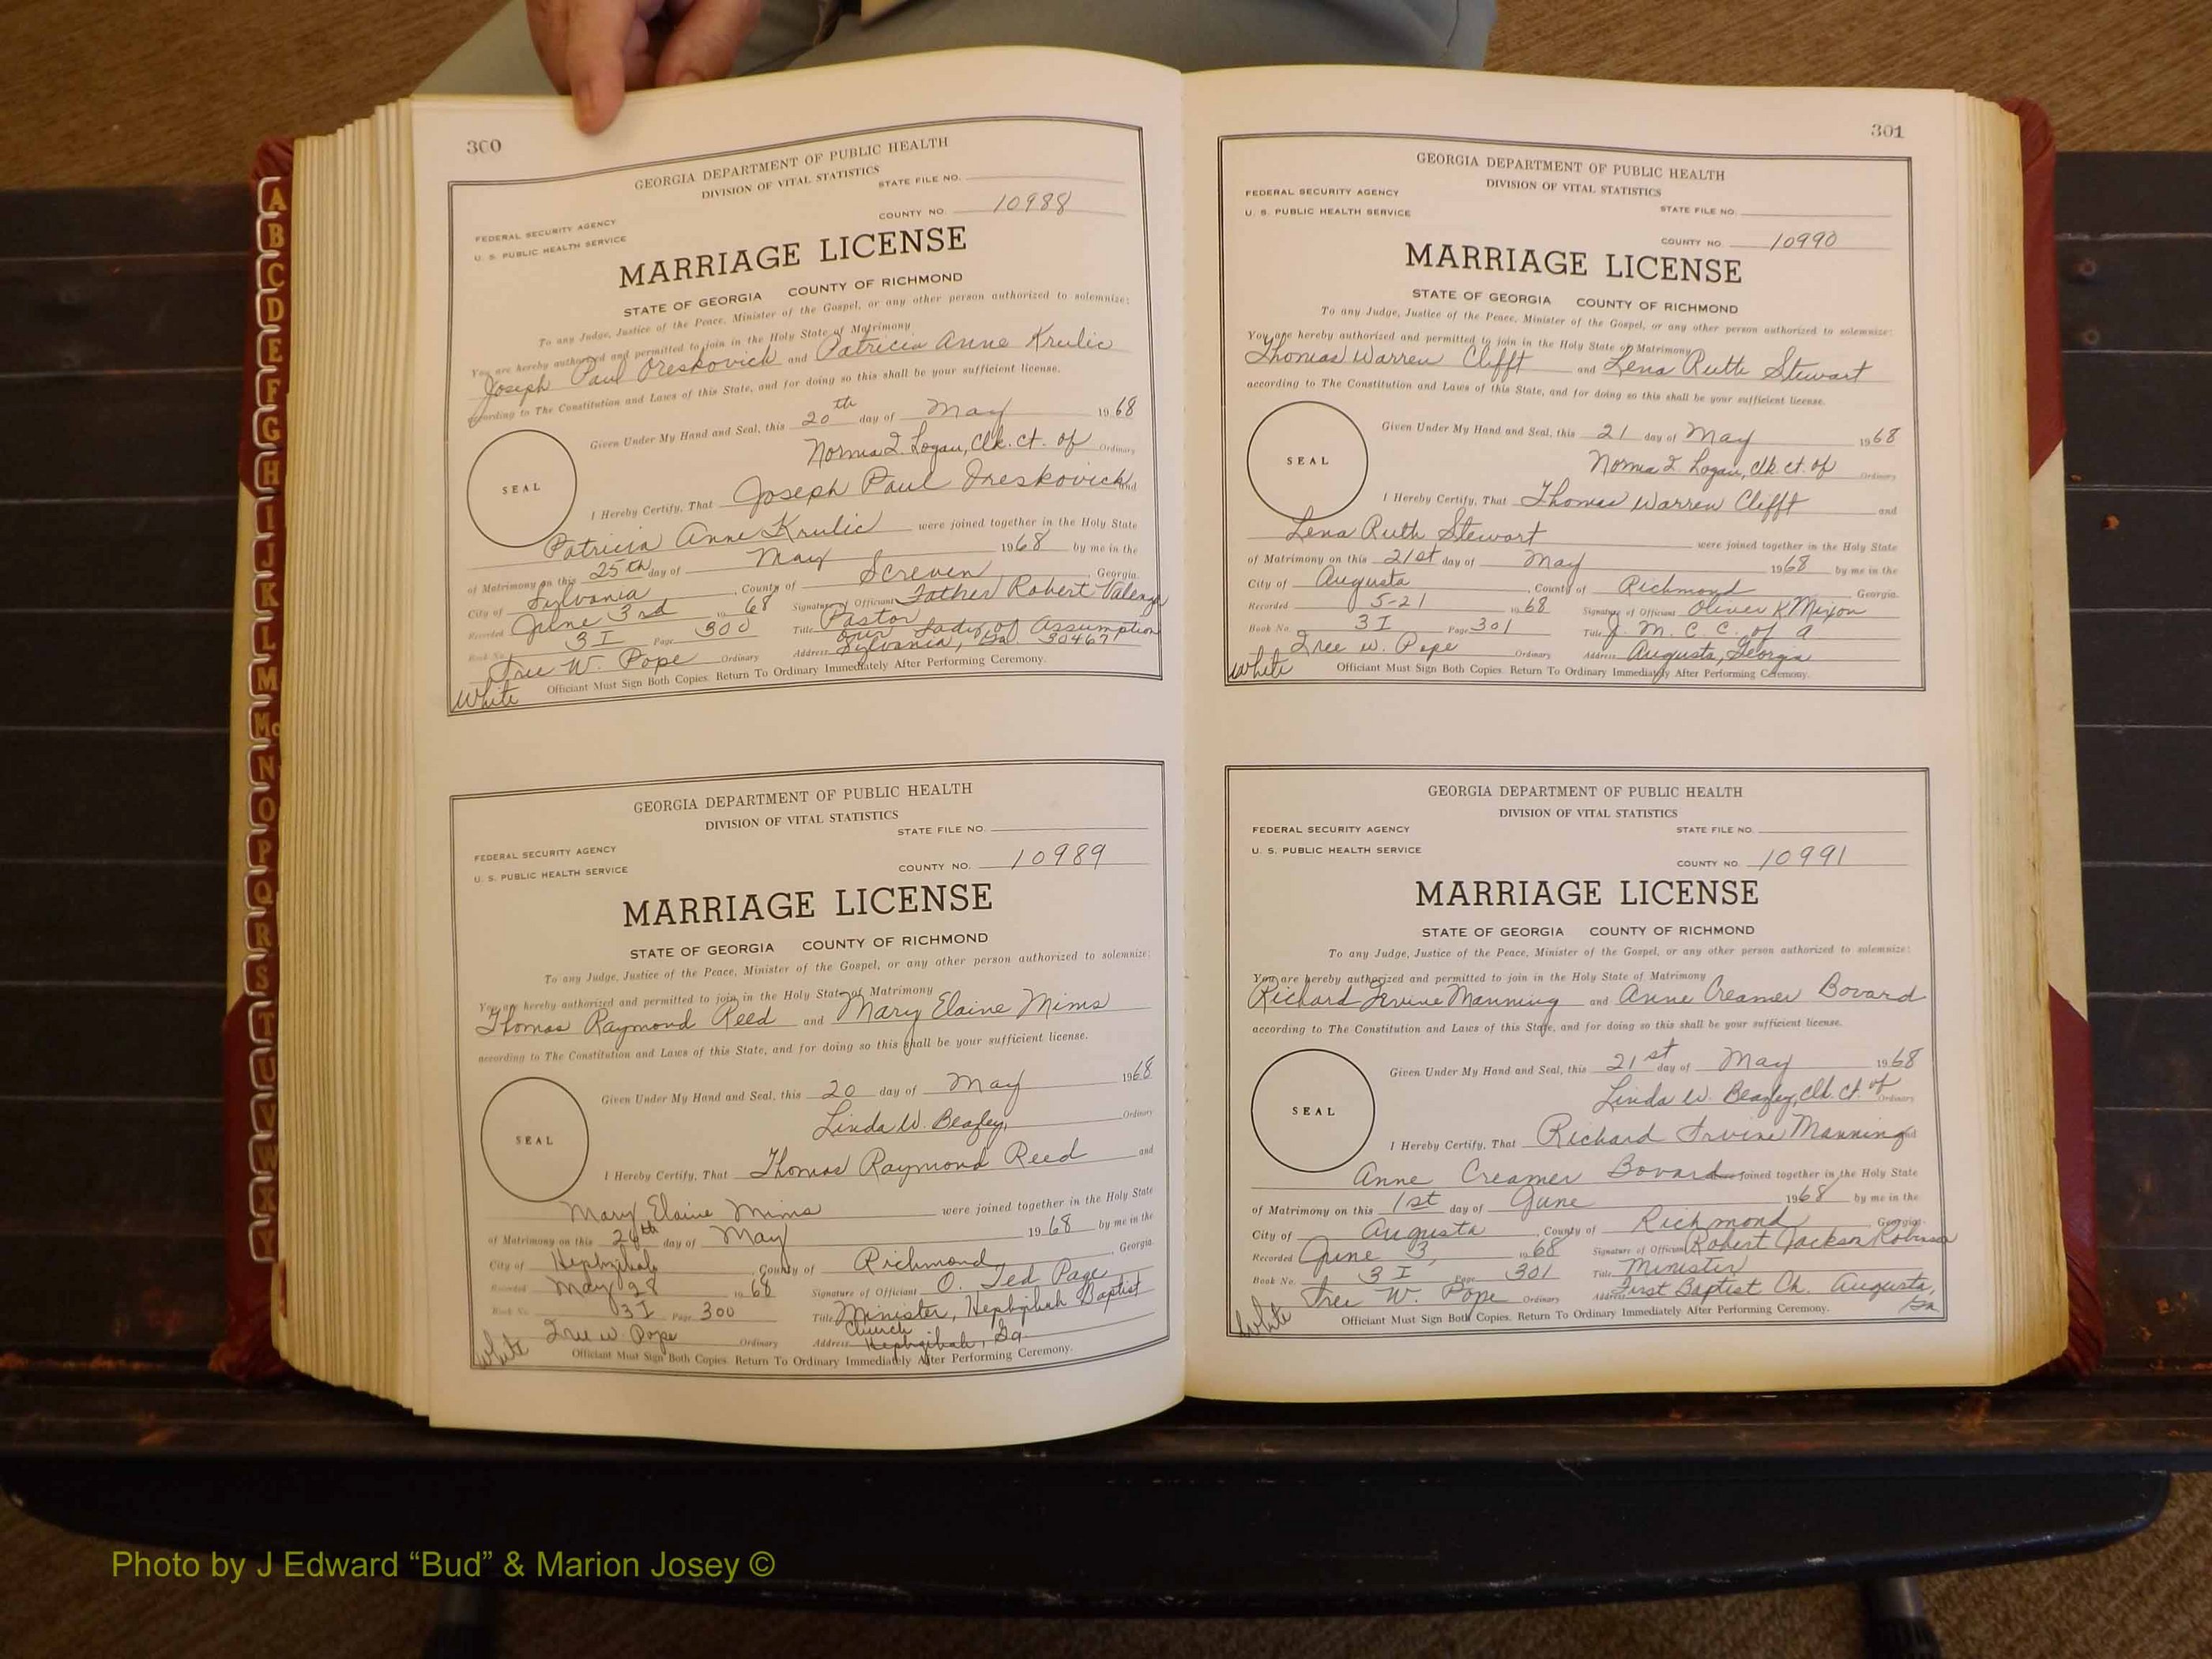 300
GEORGIA DEPARTMENT OF PUBLIC HEALTH
DIVISION OF VITAL STATISTICS
STATE FILE NO.
COUNTY NO. 10988
FEDERAL SECURITY AGENCY
U. S. PUBLIC HEALTH SERVICE
MARRIAGE LICENSE
STATE OF GEORGIA COUNTY OF RICHMOND
To any Judge, Justice of the Peace, Minister of the Gospel, or any other person authorized to solemnize:
You are hereby authorized and permitted to join in the Holy State of Matrimony
Joseph Paul Oreskovich and Patricia Anne Krulic
according to The Constitution and Laws of this State, and for doing so this shall be your sufficient license.
Given Under My Hand and Seal, this 20th day of May 1968
Norma L. Logan, Clk. Ct. of Ordinary
SEAL
I Hereby Certify, That Joseph Paul Oreskovich and
Patricia Anne Krulic were joined together in the Holy State
of Matrimony on this 25th day of May 1968 by me in the
City of Sylvania, County of Screven, Georgia.
Recorded June 3rd 1968 Signature of Officiant Father Robert
Book No. 3I Page 300 Title Pastor
Our Lady of Assumption
Tree W. Pope Ordinary Address Sylvania, Ga 30467
Officiant Must Sign Both Copies. Return To Ordinary Immediately After Performing Ceremony.
White
GEORGIA DEPARTMENT OF PUBLIC HEALTH
DIVISION OF VITAL STATISTICS
STATE FILE NO.
FEDERAL SECURITY AGENCY
U. S. PUBLIC HEALTH SERVICE
COUNTY NO. 10989
MARRIAGE LICENSE
STATE OF GEORGIA COUNTY OF RICHMOND
To any Judge, Justice of the Peace, Minister of the Gospel, or any other person authorized to solemnize:
You are hereby authorized and permitted to join in the Holy State of Matrimony
Thomas Raymond Reed and Mary Elaine Mims
according to The Constitution and Laws of this State, and for doing so this shall be your sufficient license.
Given Under My Hand and Seal, this 20 day of May 1968
Linda W. Beazley, Ordinary
SEAL
I Hereby Certify, That Thomas Raymond Reed and
Mary Elaine Mims were joined together in the Holy State
of Matrimony on this 26th day of May 1968 by me in the
City of Hephzibah, County of Richmond, Georgia.
Recorded May 28 1968 Signature of Officiant O. Ted Page
Book No. 3I Page 300 Title Minister, Hephzibah Baptist
Church
Tree W. Pope Ordinary Address Hephzibah, Ga
White
Officiant Must Sign Both Copies. Return To Ordinary Immediately After Performing Ceremony.
301
GEORGIA DEPARTMENT OF PUBLIC HEALTH
DIVISION OF VITAL STATISTICS
FEDERAL SECURITY AGENCY
U. S. PUBLIC HEALTH SERVICE
STATE FILE NO.
COUNTY NO. 10990
MARRIAGE LICENSE
STATE OF GEORGIA COUNTY OF RICHMOND
To any Judge, Justice of the Peace, Minister of the Gospel, or any other person authorized to solemnize:
You are hereby authorized and permitted to join in the Holy State of Matrimony
Thomas Warren Clifft and Lena Ruth Stewart
according to The Constitution and Laws of this State, and for doing so this shall be your sufficient license.
Given Under My Hand and Seal, this 21 day of May 1968
Norma L. Logan, Clk ct. of Ordinary
SEAL
I Hereby Certify, That Thomas Warren Clifft and
Lena Ruth Stewart were joined together in the Holy State
of Matrimony on this 21st day of May 1968 by me in the
City of Augusta, County of Richmond, Georgia.
Recorded 5-21 1968 Signature of Officiant Oliver K Mixon
Book No. 3I Page 301 Title J. M. C. C. of A
Tree W. Pope Ordinary Address Augusta, Georgia
White
Officiant Must Sign Both Copies. Return To Ordinary Immediately After Performing Ceremony.
GEORGIA DEPARTMENT OF PUBLIC HEALTH
DIVISION OF VITAL STATISTICS
FEDERAL SECURITY AGENCY
U. S. PUBLIC HEALTH SERVICE
STATE FILE NO.
COUNTY NO. 10991
MARRIAGE LICENSE
STATE OF GEORGIA COUNTY OF RICHMOND
To any Judge, Justice of the Peace, Minister of the Gospel, or any other person authorized to solemnize:
You are hereby authorized and permitted to join in the Holy State of Matrimony
Richard Irvine Manning and Anne Creamer Bovard
according to The Constitution and Laws of this State, and for doing so this shall be your sufficient license.
Given Under My Hand and Seal, this 21st day of May 1968
Linda W. Beazley, Clk. Ct. of Ordinary
SEAL
I Hereby Certify, That Richard Irvine Manning and
Anne Creamer Bovard were joined together in the Holy State
of Matrimony on this 1st day of June 1968 by me in the
City of Augusta, County of Richmond, Georgia.
Recorded June 3, 1968 Signature of Officiant Robert Jackson Robinson
Book No. 3I Page 301 Title Minister
Tree W. Pope Ordinary Address First Baptist Ch. Augusta, Ga.
White
Officiant Must Sign Both Copies. Return To Ordinary Immediately After Performing Ceremony.
A
B
C
D
E
F
G
H
I
J
K
L
M
Mc
N
O
P
Q
R
S
T
U
V
W
X
Y
Photo by J Edward “Bud” & Marion Josey ©